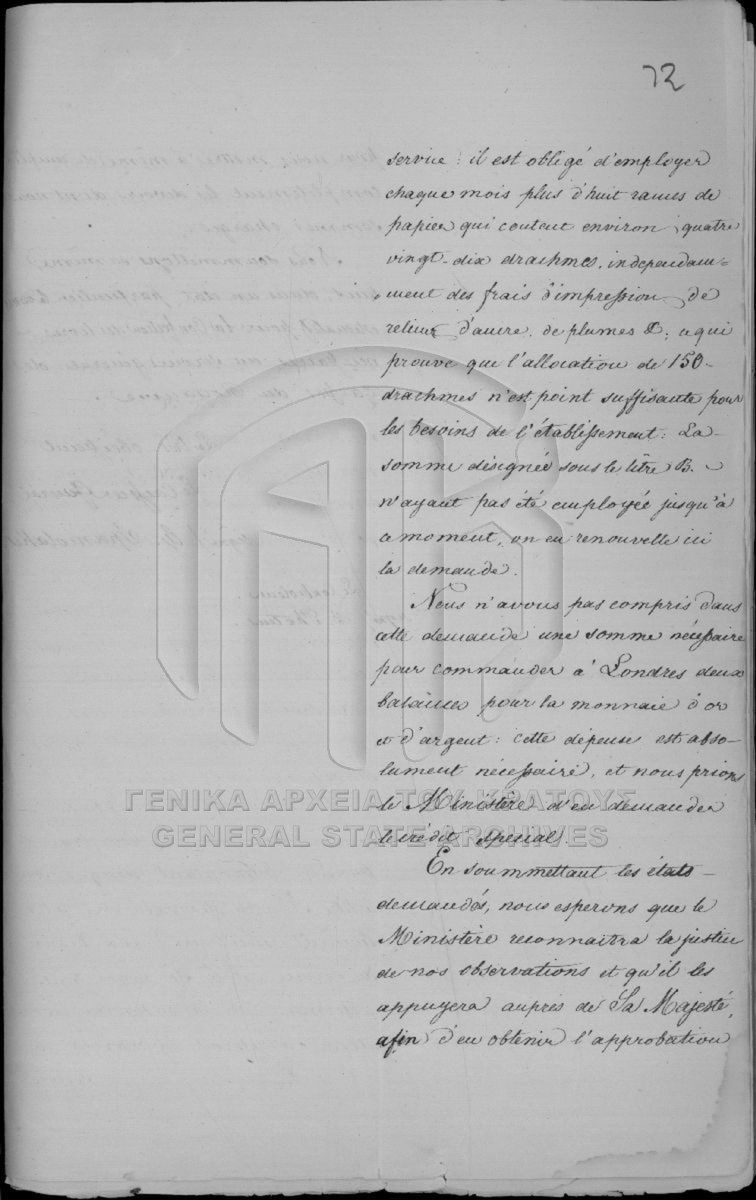 72
service: il est obligé d'employer
chaque mois plus d'huit rames de
papier qui coutent environ quatre
vingt-dix drachmes, independam-
ment des frais d'impression de
relieur d'ancre, de plumes &; ce qui
prouve que l'allocation de 150-
drachmes n'est point suffisante pour
les besoins de l'établissement: La-
somme désignée sous le titre B. -
n'ayant pas été employée jusqu'à
ce moment, on en renouvelle ici
la demande.
Nous n'avons pas compris dans
cette demande une somme nécessaire
pour commander à Londres deux
balances pour la monnaie d'or
et d'argent: cette dépense est abso-
lument nécessaire, et nous prions
le Ministère d'en demander
le crédit special.
En soummettant les états-
demandés, nous esperons que le
Ministère reconnaitra la justice
de nos observations et qu'il les
appuyera auprès de Sa Majesté,
afin d'en obtenir l'approbation
ΓΕΝΙΚΑ ΑΡΧΕΙΑ ΤΟΥ ΚΡΑΤΟΥΣ
GENERAL STATE ARCHIVES